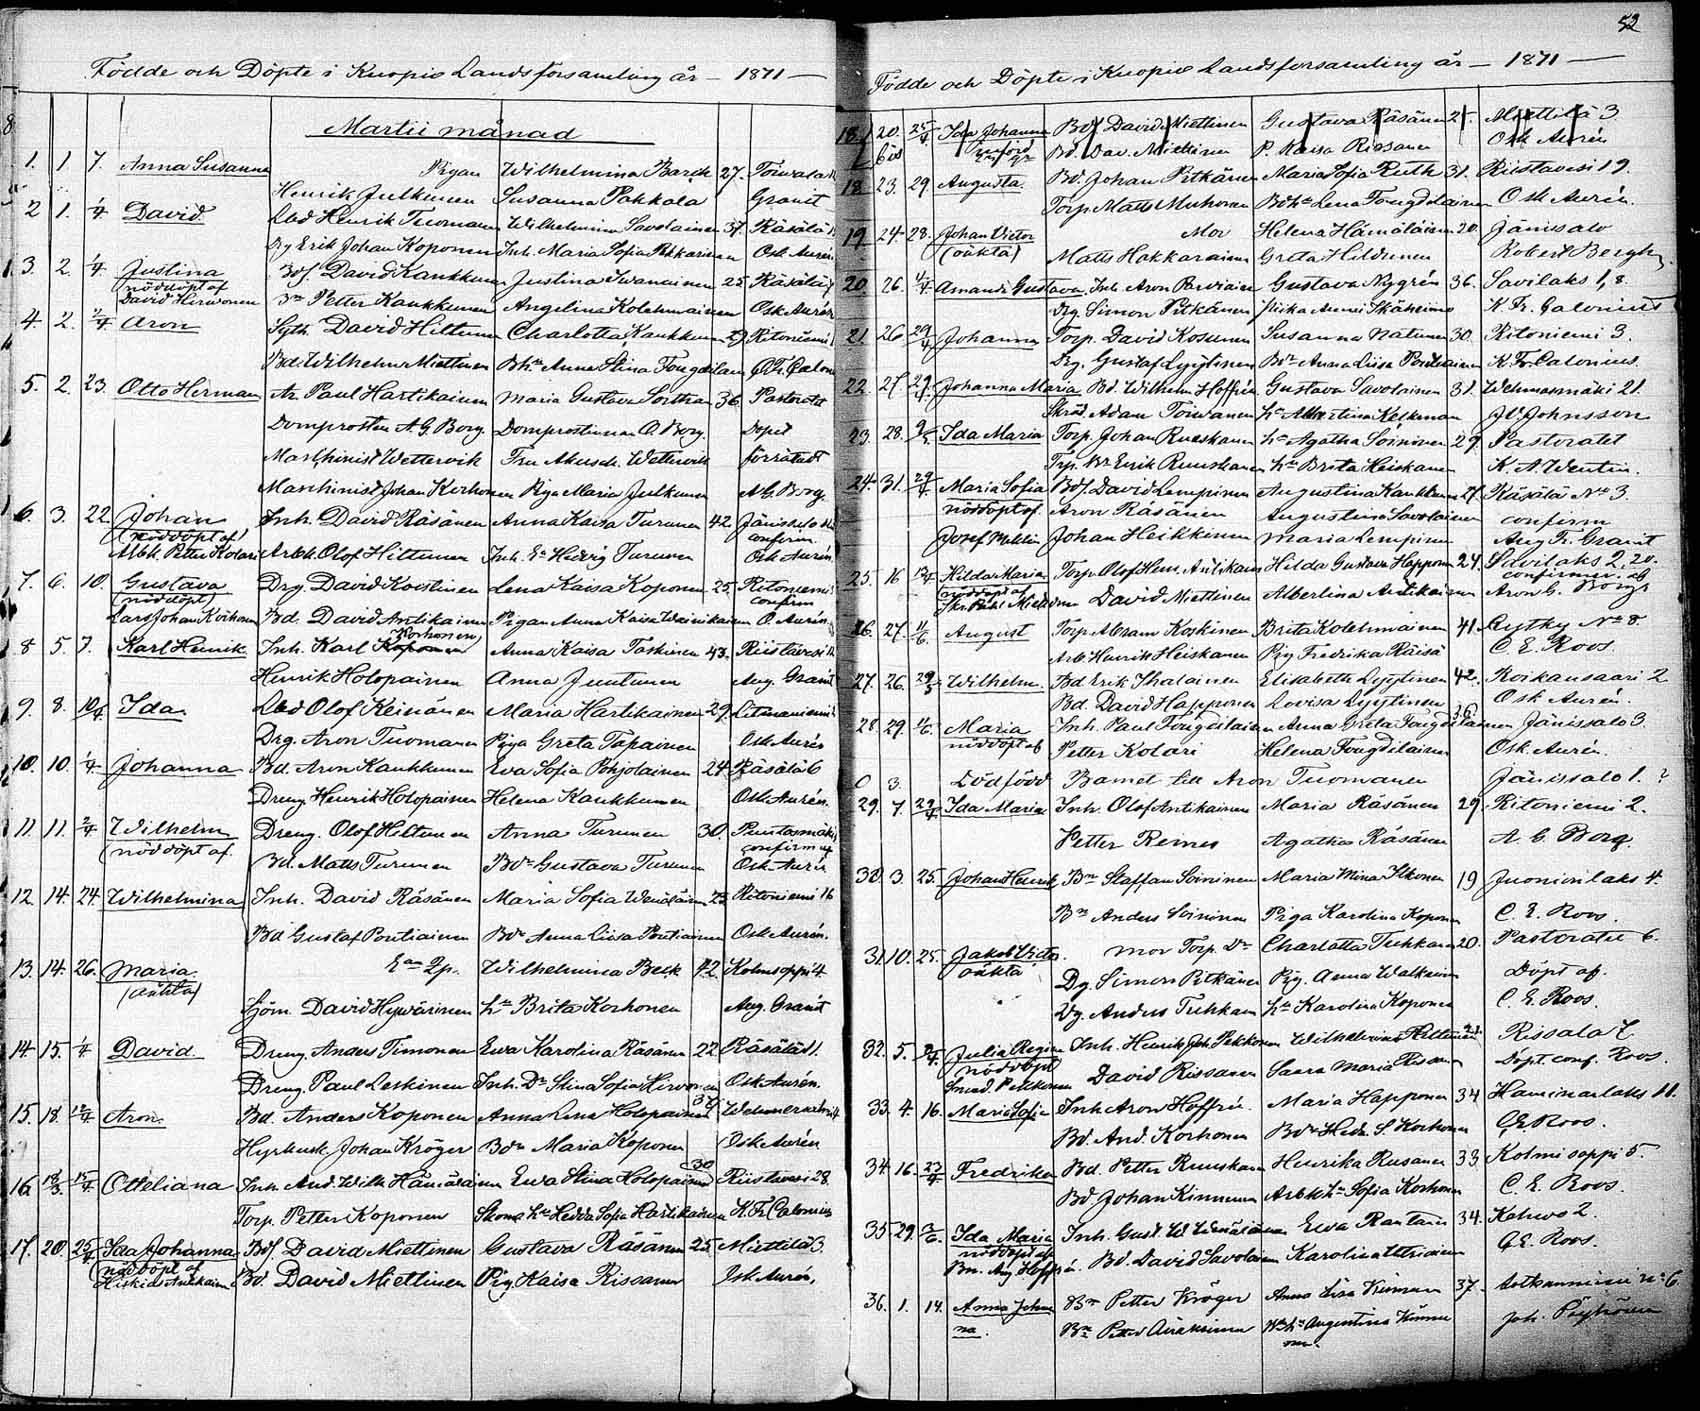 52
Födde och Döpte i Kuopio Landsförsamling år — 1871 —
Martii månad
1. 1 7. Anna Susanna Pigan Wilhelmina Barck 27. Toiwala
Henrik Julkunen Susanna Pakkala Granit
2 1. 1/4 David Lbd Henrik Tuomanen Wilhelmina Savolainen 37. Räsälä
Dg Erik Johan Koponen Inh. Maria Sofia Pekkarinen Osk. Aurén
3. 2. 1/4 Justina Bdf David Kaukkunen Justina Iwanainen 25 Räsälä
nöddöpt af
David Hirwonen Petter Kaukkunen Angelika Kolehmainen Osk Aurén
4. 2. 2/4 Aron Sytn. David Hiltunen Charlotta Kaukkunen 29 Ritoniemi
Bd. Wilhelm Miettinen Anna Stina Tougdilain K. Fr. Calon
5. 2 23. Otto Herman Ar. Paul Hartikainen Maria Gustava Sorttran 36. Pastoratet
Domprosten A. G. Borg. Domprostinnan O. Borg. Döpet
Maschinist Wettervik Fru Wettervik förrätadt
Maschinist Johan Korhonen Piga Maria Julkunen A G Borg.
6. 3. 22. Johan Inh. David Räsänen Anna Kaisa Turunen 42. Jänissalo
(nöddöpt af) confirm.
Arbk. Petter Kolari Arbk. Olof Hiltunen Inh. Ea Hedvig Turunen Osk Aurén
7. 6. 10. Gustava Drg. David Kostinen Lena Kaisa Koponen 25. Ritoniemi
(nöddöpt) confirm
Lars Johan Korhonen Bd. David Antikainen Pigan Anna Kaisa Wainikainen O. Aurén
8 5 7. Karl Henrik Inh. Karl Koponen Korhonen Anna Kaisa Taskinen 43. Riistavesi
Henrik Holopainen Anna Juntunen Aug. Granit
9. 8. 10/4 Ida Lbd Olof Keinänen Maria Hartikainen 29. Litmaniemi
Drg. Aron Tuomanen Piga Greta Tapainen Osk Aurén
10. 10. 1/4 Johanna Bd. Aron Kaukkunen Eva Sofia Pohjolainen 24. Räsälä 6
Dreng Henrik Holopainen Helena Kaukkunen Osk Aurén.
11. 11. 2/4 Wilhelm Dreng. Olof Hiltunen Anna Turunen 30. Puutosmäki
(nöddöpt af. confirm af
Bd. Matts Turunen Bdr Gustava Turunen Osk Aurén
12. 14. 24. Wilhelmina Inh. David Räsänen Maria Sofia Wänäläinen 23. Ritoniemi 16
Bd Gustaf Pontiainen Bdr Anna Liisa Pontiainen Osk Aurén.
13. 14. 26. Maria. Wilhelmina Beck 42. Kolmisoppi 4
(oäkta)
Sjöm. David Hywärinen hu Brita Korhonen Aug. Granit
14. 15. 1/4 David Dreng Anders Timonen Ewa Karolina Räsänen 22 Räsälä 1.
Dreng. Paul Leskinen Inh. Dr Stina Sofia Hirvonen Osk Aurén.
15 18. 12/4 Aron. Bd. Anders Koponen Anna Lena Holopainen 37 Wehmersalmi
Hyrkusk. Johan Kröger Bdr Maria Koponen Osk Aurén
16. 18/3 15/4 Otteliana Inh. And. Wilh. Hämäläinen Ewa Stina Holopainen 30 Riistavesi 28.
Torp. Petter Koponen Hedda Sofia Hartikainen K. Fr. Calonius
17. 20. 25/4 Ida Johanna Bdf. David Miettinen Gustava Räsänen 25. Miettilä 3.
nöddöpt af
Hiskias Antikainen Bd. David Miettinen Pig Kaisa Rissanen Osk Aurén.
Födde och Döpte i Kuopio Landsförsamling år — 1871 —
18. 20. 25/4 Ida Johanna Bdf David Miettinen Gustava Räsänen 25. Miettilä 3
Bd. Dav. Miettinen P. Kaisa Rissanen Osk Aurén
18. 23. 29. Augusta. Bd. Johan Pitkänen Maria Sofia Ruth 31. Riistavesi 19.
Torp. Matts Muhonen Lena Tougdilainen Osk Aurén.
19. 24. 28. Johan Victor Mor Helena Hämäläinen 20. Jänissalo
(oäkta) Matts Hakkarainen Greta Hildunen Robert Bergh
20. 26. 1/4 Amanda Gustava. Inh. Aron Parviainen Gustava Nygrén 36. Savilaks 1, 8.
Drg. Simon Pitkänen flicka Anna K. Fr. Calonius
21. 26 29/4 Johanna Torp. David Kosunen Susanna Natunen 30. Ritoniemi 3.
Drg. Gustaf Lyytinen Anna Liisa Pontiainen K. Fr. Calonius.
22. 27. 29/4. Johanna Maria Bd. Wilhelm Hoffrén Gustava Savolainen 31. Wehmasmäki 21.
Skräd. Adam Toiwanen hu Albertina Kekkonen J. V. Johnsson
23. 28. 9/5 Ida Maria Torp. Johan Ruuskanen hu Agatha Soininen 29. Pastoratet
Erik Ruuskanen hu Brita Heiskanen K. A. Wentin.
24. 31. 29/4 Maria Sofia Bdf. David Lempinen Augustina Kaukkunen 27. Räsälä No 3.
nöddöpt af Aron Räsänen Augustina Savolainen confirm
Josef Johan Heikkinen Maria Lempinen Aug Fr. Granit
25. 16 12/4 Hilda Maria Torp. Olof Hen. Antikainen Hilda Gustava Happonen 24. Savilaks 2, 20.
(nöddöpt af confirmer. af
Miettinen David Miettinen Albertina Antikainen Aron G. Borg.
26. 27. 11/6. August Torp. Abram Koskinen Brita Kolehmainen 41. Lytky No 8
Arb Henrik Heiskanen Pig Fredrika Räisä C. E. Roos.
27. 26. 29/5 Wilhelm. Bd Erik Ihalainen Elisabeth Lyytinen 42. Roikansaari 2
Bd. David Happonen Lovisa Lyytinen Osk Aurén.
28. 29. 11/6. Maria Inh. Paul Tougdilainen Anna Greta Tougdilainen 36 Jänissalo 3.
nöddöpt af Petter Kolari Helena Tougdilainen Osk Aurén.
0 3. Dödfödd Barnet till Aron Tuomanen Jänissalo 1. ?
29. 7. 29/4 Ida Maria Inh. Olof Antikainen Maria Räsänen 29. Ritoniemi 2.
Petter Remes Agatha Räsänen A. G. Borg.
30. 3. 25. Johan Henrik Bn Staffan Soininen Maria Mina Ikonen 19 Juonionlaks 4.
Bn Anders Soininen Piga Karolina Koponen C. E. Roos.
31. 10. 25. Jakob Victor. Mor Torp. Dr Charlotta Tuhkanen 20. Pastoratet 6.
oäkta Dg Simon Pitkänen Pig. Anna Walkeinen Döpt af.
Dg. Anders Tuhkanen hu Karolina Koponen C. E. Roos.
32. 5. Julia Regina Inh. Henrik Joh. Pekkonen Wilhelmina Hiltunen Rissala 7.
nöddöpt David Rissanen Saara Maria Rissanen Döpt conf. Roos.
Pekkonen
33. 4. 16. Maria Sofia Inh Aron Hoffrén. Maria Happonen 34 Haminanlaks 11.
Bd. And. Korhonen Bdr Hedv. S. Korhonen C E Roos.
34. 16. 23/4 Fredrika Bd. Petter Ruuskanen Henrika Rusanen 33. Kolmisoppi 5.
Bd Johan Kinnunen Sofia Korhonen C. E. Roos.
35. 29. Ida Maria Inh. Gust. W. Wänäläinen Ewa Rantain 34. Kehwo 2.
nöddöpt af
Bn. Aug Hoffrén. Bd. David Savolainen Karolina C. E. Roos.
36. 1. 14. Anna Johanna. Bn Petter Kröger Anna Lisa Kinnunen 37. No 6.
Bn Petter Airaksinen Augustina Kinnunen. Joh. Pöyhönen